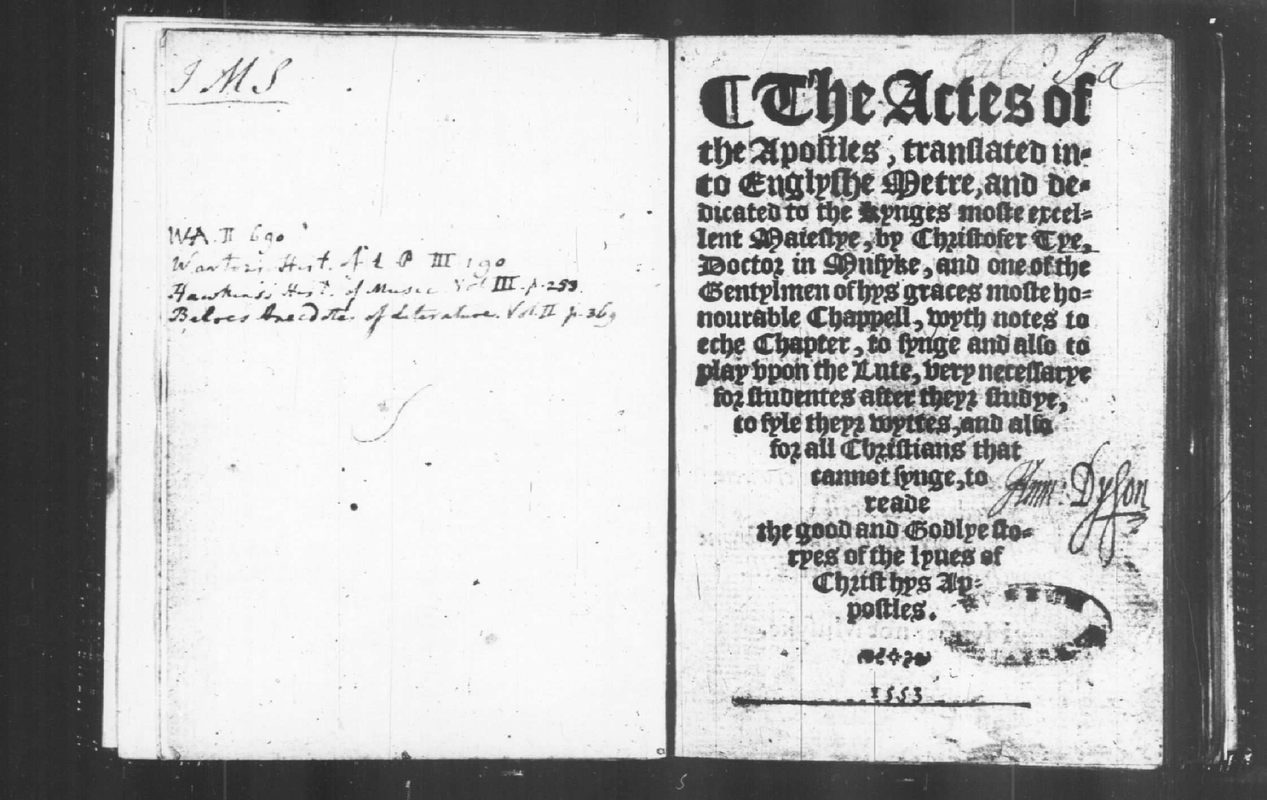 I M S
WA. II 690
Warton's Hist. of E P III. 190
Hawkins's Hist. of Music Vol III. p. 253.
Beloe's Anecdotes of Literature. Vol. II p. 369
¶ The Actes of
the Apostles, translated in=
to Englyshe Metre, and de=
dicated to the Kynges moste excel=
lent Maiestye, by Christofer Tye,
Doctor in Musyke, and one of the
Gentylmen of hys graces moste ho=
nourable Chappell, wyth notes to
eche Chapter, to synge and also to
play vpon the Lute, very necessarye
for studentes after theyr studye,
to fyle theyr wyttes, and also
for all Christians that
cannot synge, to
reade
the good and Godlye sto=
ryes of the lyues of
Christ hys Ap=
postles.
1553
Hum: Dyson